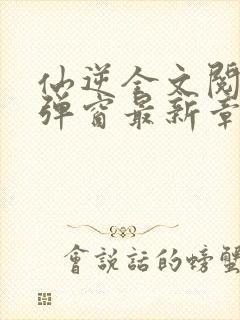 仙逆全文閱
彈窗最新章
會說話的螃蟹